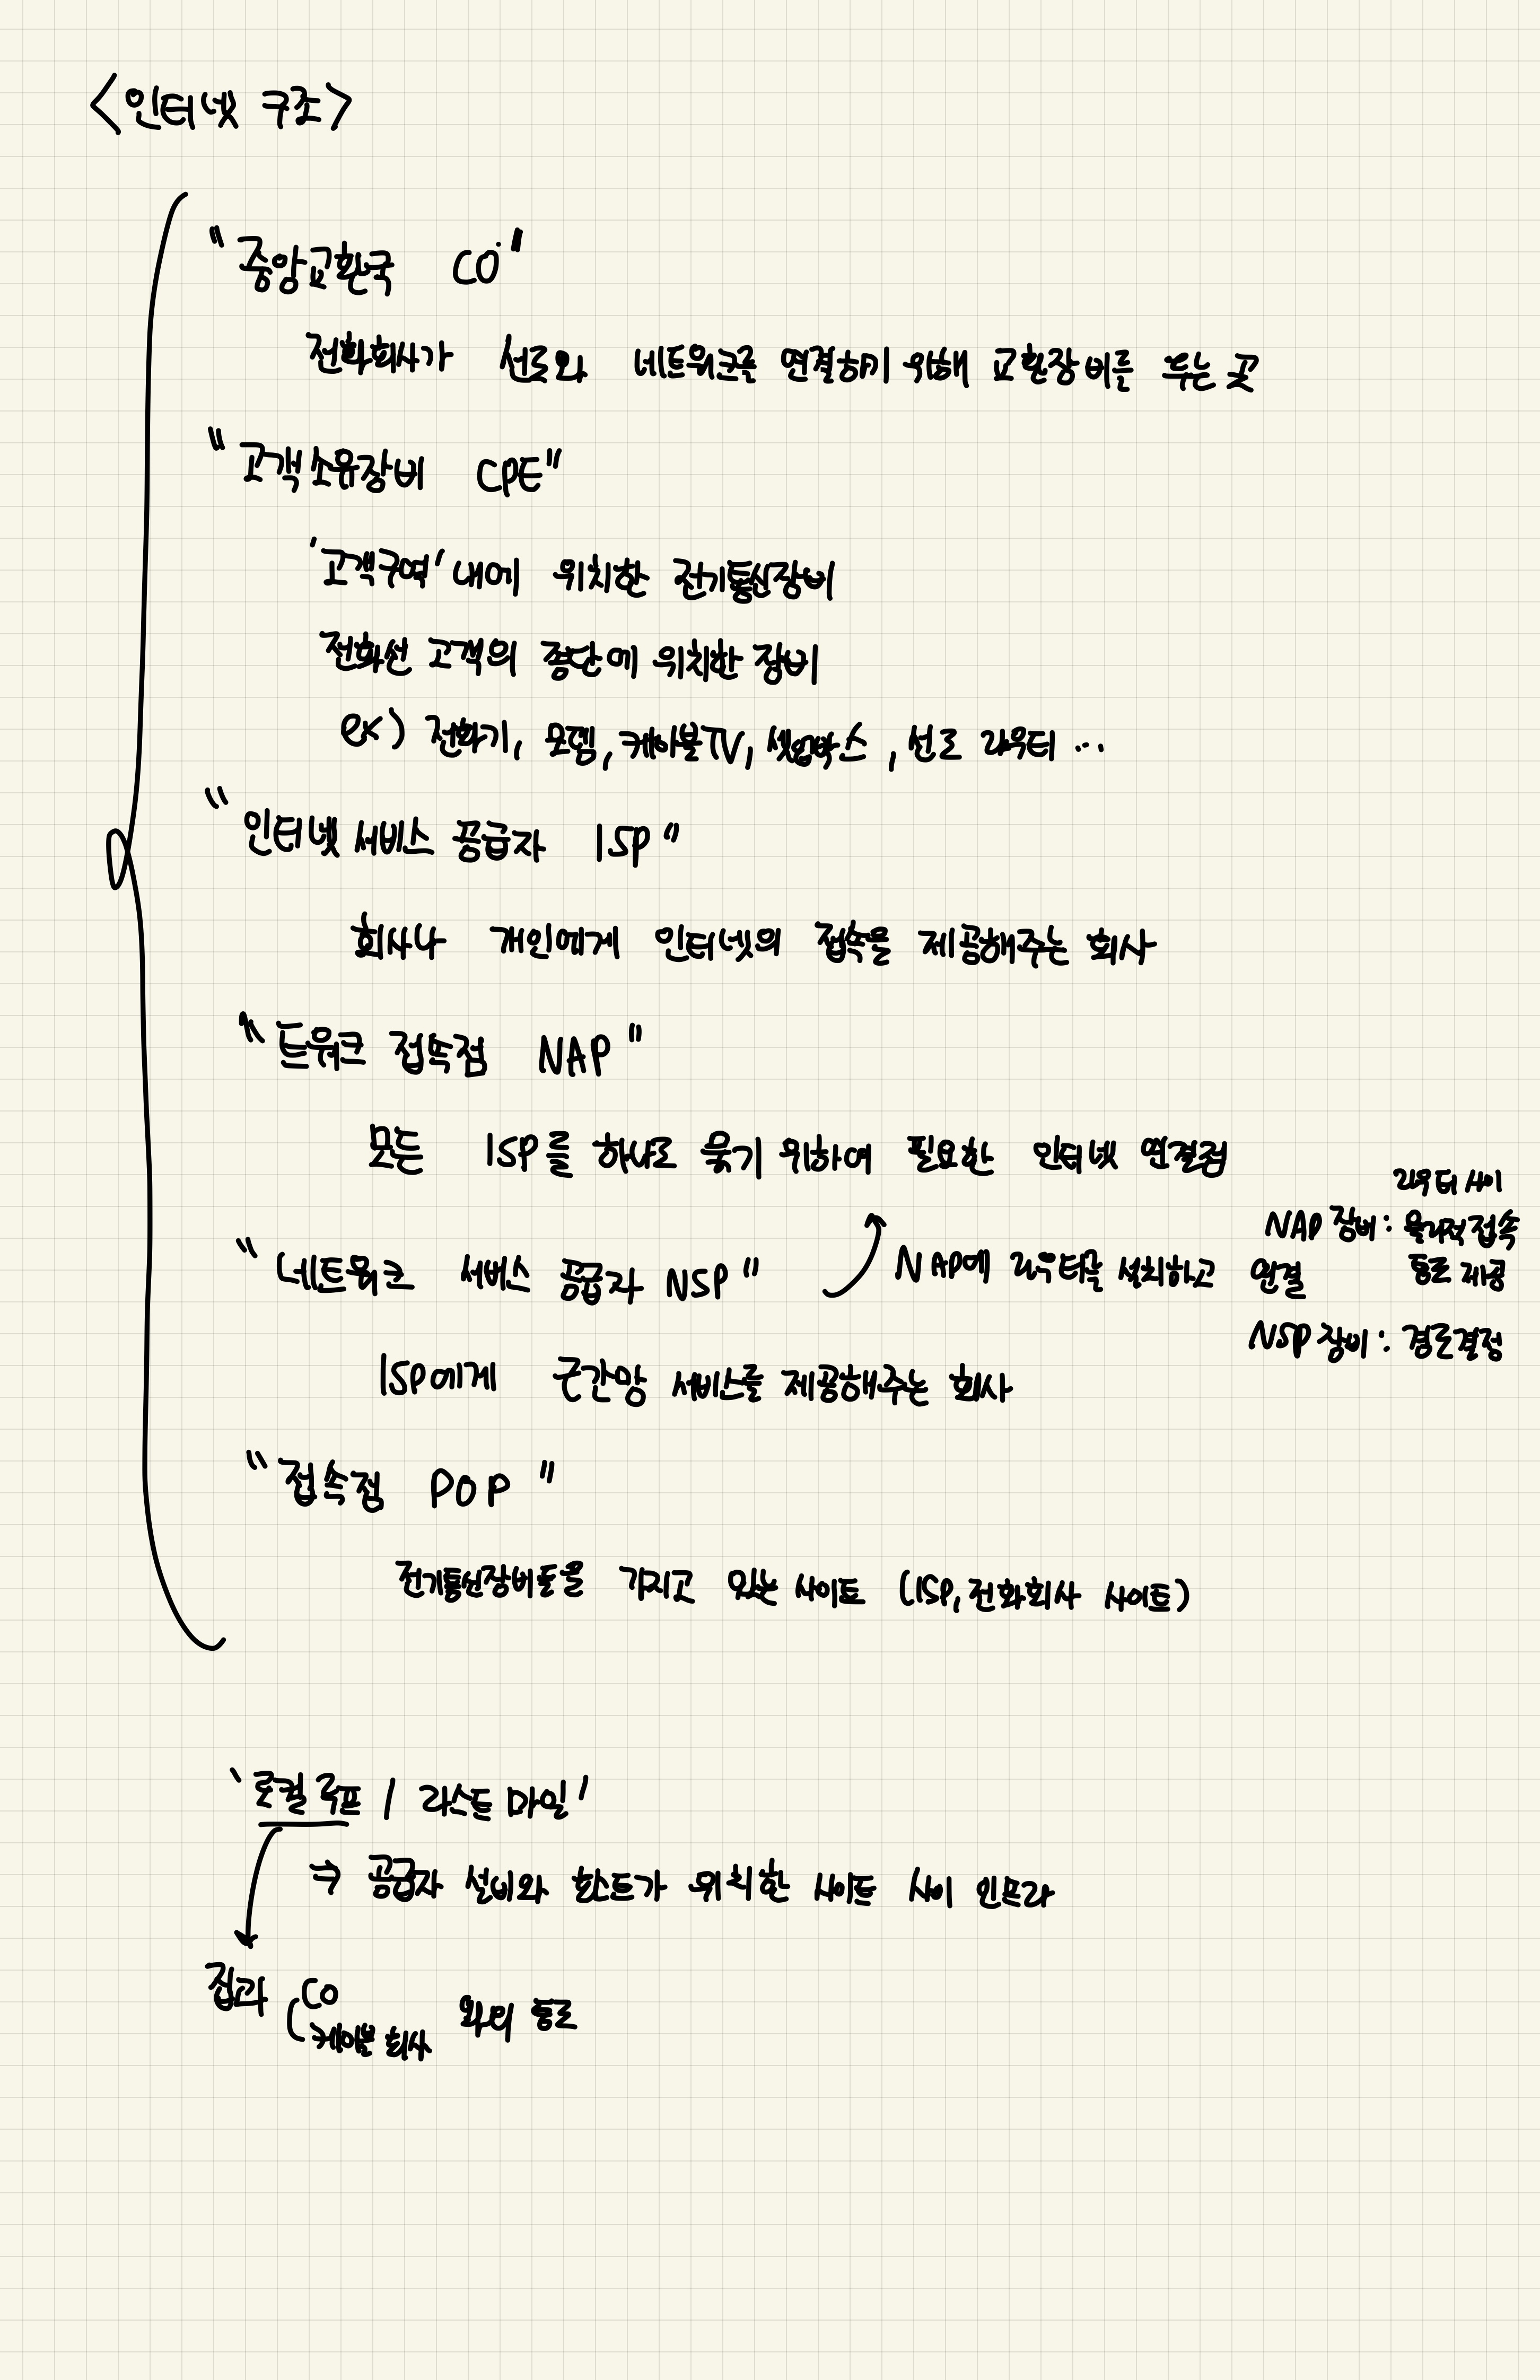 <인터넷 구조>
"중앙교환국 CO"
전화회사가 선로와 네트워크를 연결하기 위해 교환장비를 두는 곳
"고객소유장비 CPE"
'고객구역' 내에 위치한 전기통신장비
전화선 고객의 종단에 위치한 장비
ex) 전화기, 모뎀, 케이블TV, 셋업박스, 선로 라우터 ...
"인터넷 서비스 공급자 ISP"
회사나 개인에게 인터넷의 접속을 제공해주는 회사
"트워크 접속점 NAP"
모든 ISP를 하나로 묶기 위하여 필요한 인터넷 연결점
"네트워크 서비스 공급자 NSP"
NAP에 라우터를 설치하고 연결
라우터 사이
NAP 장비 : 물리적 접속
통로 제공
NSP 장비 : 경로결정
ISP에게 근간망 서비스를 제공해주는 회사
"접속점 POP"
전기통신장비들을 가지고 있는 사이트 (ISP, 전화회사 사이트)
'로컬 루프 / 라스트 마일'
⇒ 공급자 설비와 호스트가 위치한 사이트 사이 인프라
집과 CO 와의 통로
케이블 회사